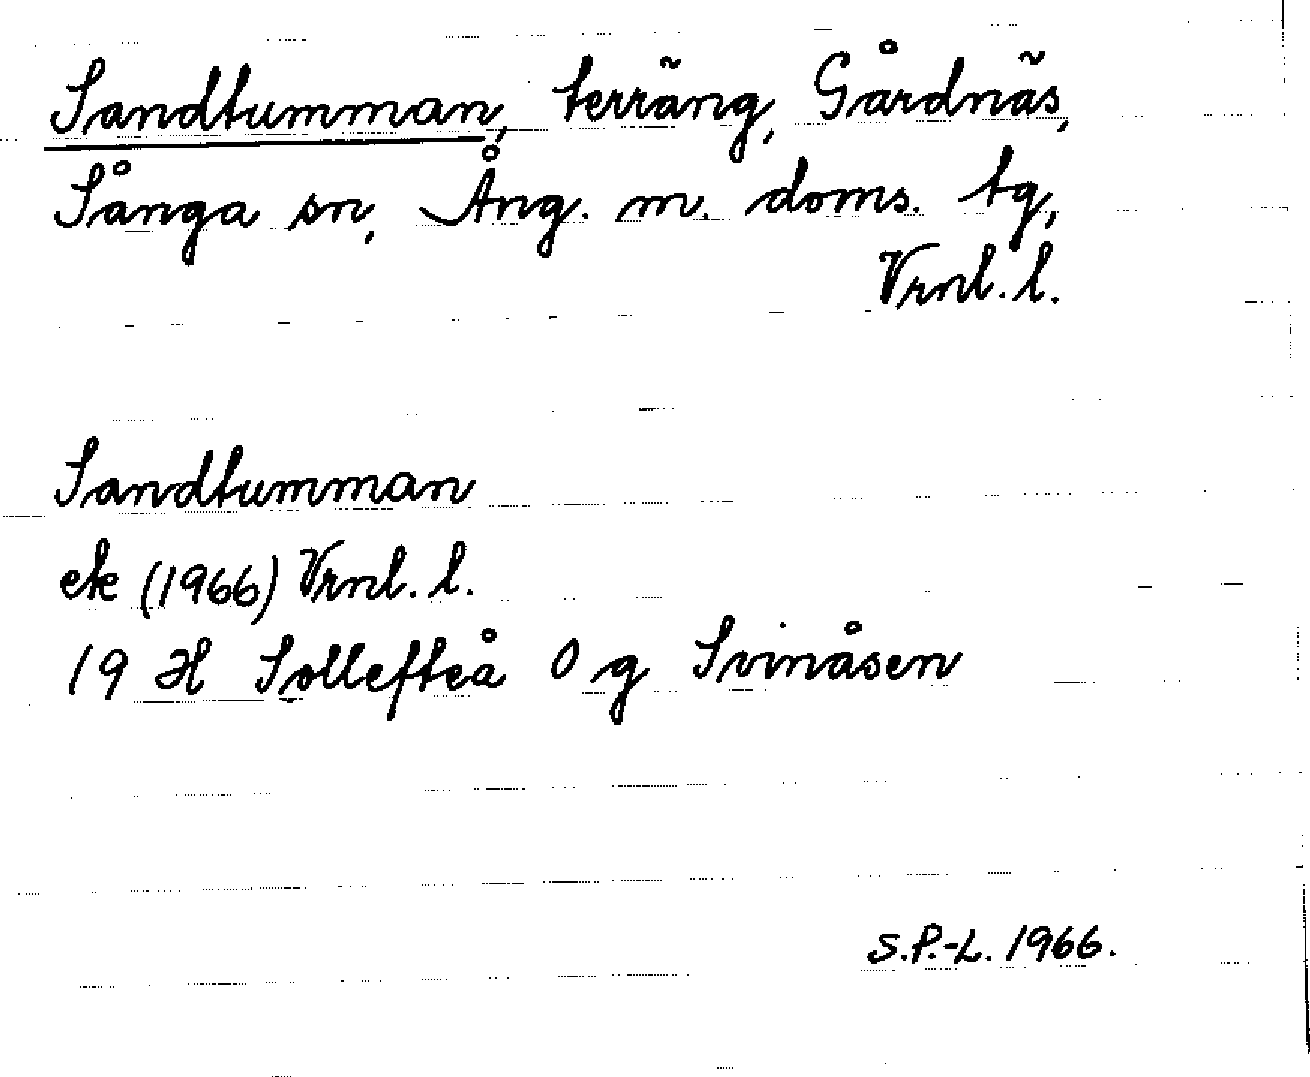 Sandtumman, terräng, Gårdnäs,
Sånga sn, Ång. m. doms. tg,
Vrnl. l.
Sandtumman
ek (1966) Vrnl. l.
19 H Sollefteå 0 g Svinåsen
S.P.-L. 1966.